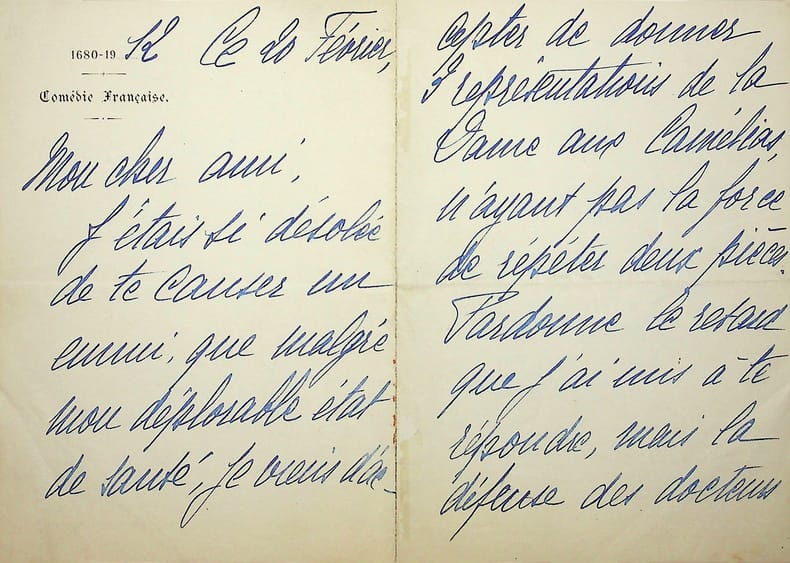 1680-19 12 Ce 20 Février,
Comédie Française.
Mon cher ami,
J'étais si désolée
de te causer un
ennui, que malgré
mon déplorable état
de santé, je viens d'ac-
cepter de donner
3 représentations de la
Dame aux Camélias,
n'ayant pas la force
de répéter deux pièces.
Pardonne le retard
que j'ai mis à te
répondre, mais la
défense des docteurs